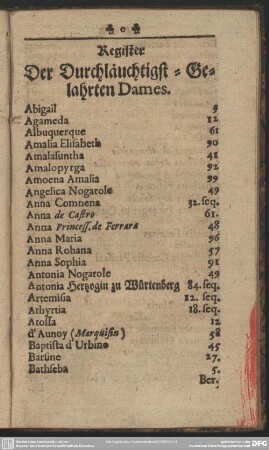 Register
Der Durchläuchtigst = Ge-
lahrten Dames.
Abigail 9
Agameda 12
Albuquerque 61
Amalia Elisabeth 90
Amalasuntha 41
Amalopyrga 92
Amoena Amalia 99
Angelica Nogarole 49
Anna Comnena 32. seq.
Anna de Castro 61.
Anna Princess. de Ferrara 48
Anna Maria 96
Anna Rohana 57
Anna Sophia 91
Antonia Nogarole 49
Antonia Hertzogin zu Würtenberg 84. seq.
Artemisia 12. seq.
Athyrtia 18. seq.
Atossa 12
d'Aunoy (Marquisin) 58
Baptista d'Urbino 45
Barsine 27.
Bathseba 5.
Ber.